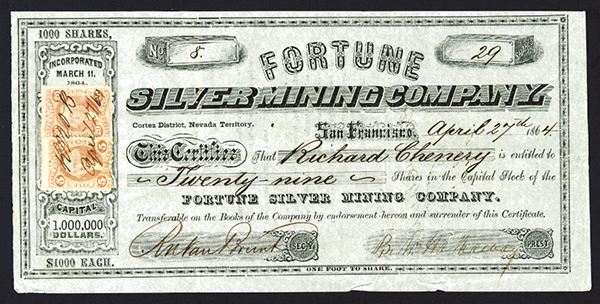 1000 SHARES,
INCORPORATED
MARCH 11.
1864.
CAPITAL
1,000,000
DOLLARS.
$1000 EACH.
No. 8.
FORTUNE
29
SILVER MINING COMPANY,
Cortez District, Nevada Territory.
San Francisco, April 27th 1864.
This Certifies That Richard Chenery is entitled to
Twenty nine Shares in the Capital Stock of the
FORTUNE SILVER MINING COMPANY.
Transferable on the Books of the Company by endorsement hereon and surrender of this Certificate.
SEC'Y.
PREST
ONE FOOT TO SHARE.